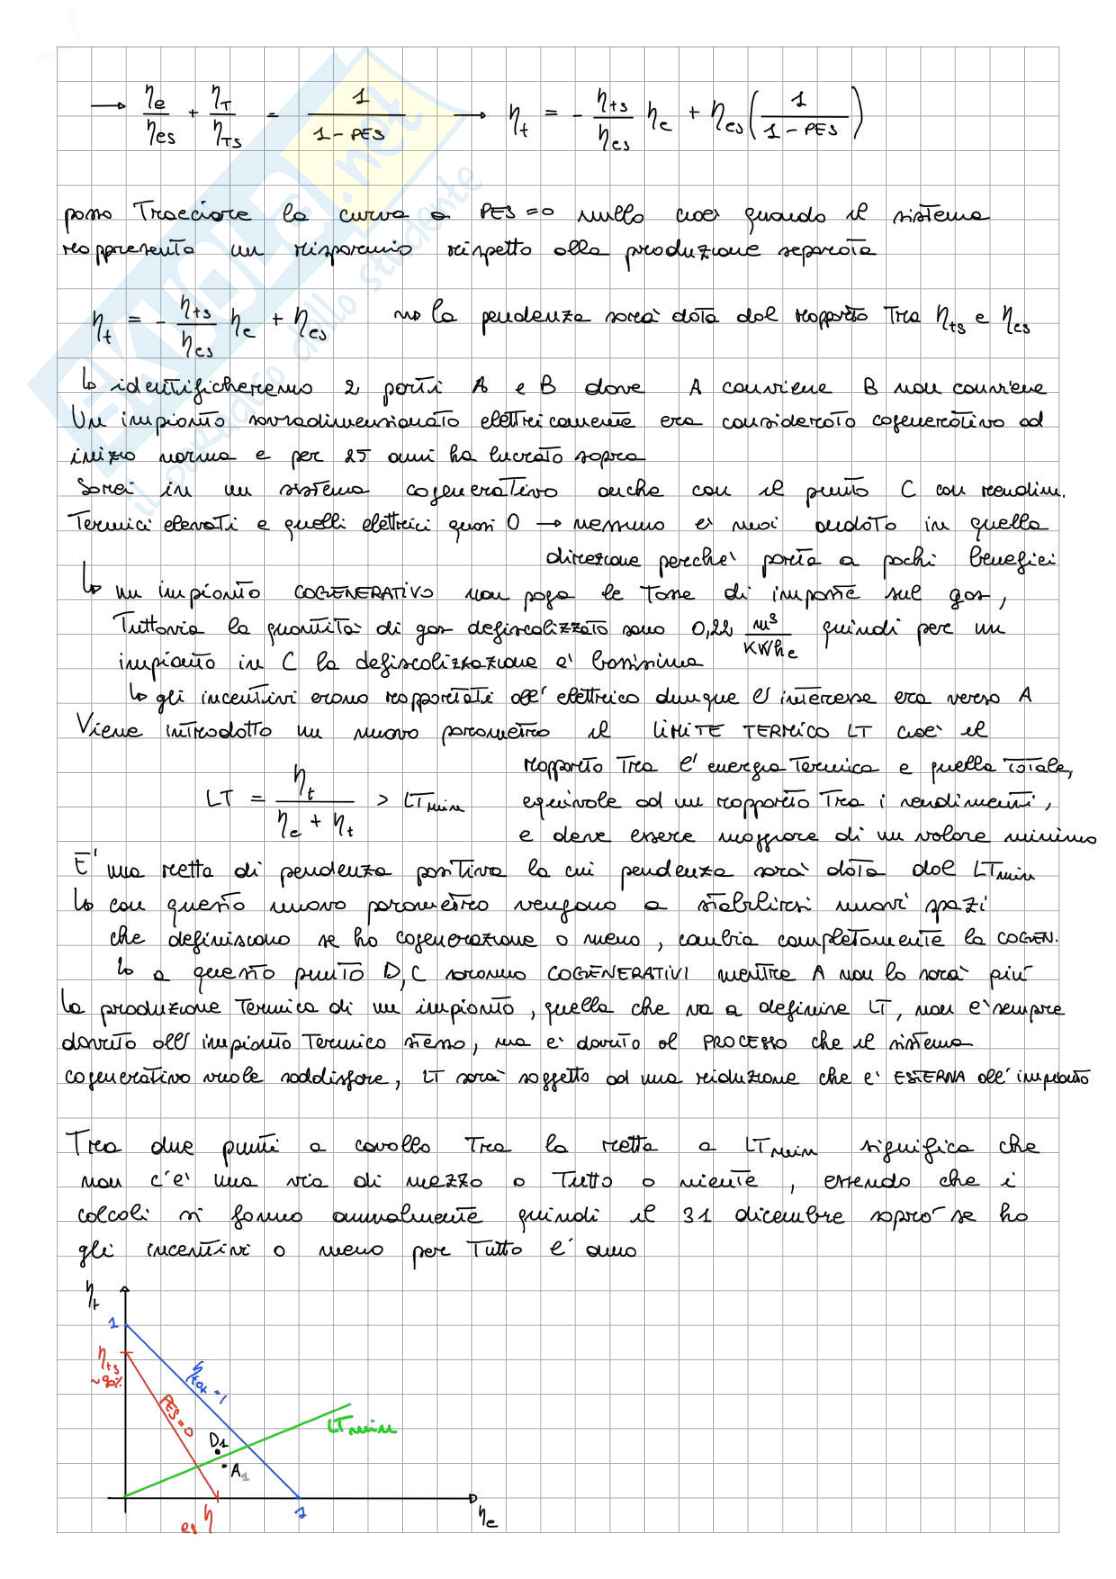 → ηe/ηes + ηT/ηTS = 1/(1-PES) → ηt = - ηts/ηes ηe + ηes (1/(1-PES))
posso Tracciare la curva a PES=0 nullo cioè quando il sistema
rappresenta un risparmio rispetto alla produzione separata
ηt = - ηts/ηes ηe + ηes ⇝ la pendenza sarà data dal rapporto Tra ηts e ηes
↳ identificheremo 2 porti A e B dove A conviene B non conviene
Un impianto sovradimensionato elettricamente era considerato cogenerativo ad
inizio norma e per 25 anni ha lucrato sopra
Sarei in un sistema cogenerativo anche con il punto C con rendim.
Termici elevati e quelli elettrici quasi 0 → nessuno è mai andato in quella
direzione perchè porta a pochi benefici
↳ un impianto COGENERATIVO non paga le Tasse di imposte sul gas,
Tuttavia la quantità di gas defiscalizzato sono 0,22 m³/KWhe quindi per un
impianto in C la defiscalizzazione è bassissima
↳ gli incentivi erano rapportati all'elettrico dunque l'interesse era verso A
Viene introdotto un nuovo parametro il LIMITE TERMICO LT cioè il
rapporto Tra l'energia Termica e quella totale,
LT = ηt/(ηe + ηt) > LTmin equivale ad un rapporto Tra i rendimenti,
e deve essere maggiore di un valore minimo
E' una retta di pendenza positiva la cui pendenza sarà data dal LTmin
↳ con questo nuovo parametro vengono a stabilirsi nuovi spazi
che definiscono se ho cogenerazione o meno, cambia completamente la COGEN.
↳ a questo punto D,C saranno COGENERATIVI mentre A non lo sarà più
la produzione Termica di un impianto, quella che va a definire LT, non è sempre
dovuto all'impianto Termico stesso, ma è dovuto al PROCESSO che il sistema
cogenerativo vuole soddisfare, LT sarà soggetto ad una riduzione che è ESTERNA all'impianto
Tra due punti a cavallo Tra la retta a LTmin significa che
non c'è una via di mezzo o Tutto o niente, essendo che i
calcoli si fanno annualmente quindi il 31 dicembre saprò se ho
gli incentivi o meno per Tutto l'anno
ηt
1
ηts
~90%
ηtot=1
PES=0
LTmin
D1
A1
ηes
1
ηe
EXULO.net
il paradiso dello studente